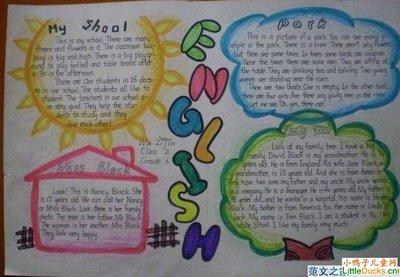 My Shool
This is my school. There are many
trees and flowers in it. The classroom buil
ding is big and high. There is a big playgro
und to play football and table tennis after
4:30 in the afternoon.
There are 1200 students in 26 class
es in our school. The students all like to
student. The teachers in our school are
so very good. They help the stu
dents to study and they
love each other!
ENGLISH
Class 2
Grade 6
Park
This is a picture of a park. You can see many
people in the park. There is a river. There aren't any
but there are some trees. In trees some birds are singing.
Near the trees there are some men. They are sitting at
the table. They are drinking tea and talking. Two young
women are standing near the river.
There are two boats. One is empty. In the other boat,
there are four girls. And there are young men in the river.
Let me see. Oh, yes, there are!
Miss Black
Look! This is Nancy Black. She
is 17 years old. We can call her Nancy
Black. Look. She is her family
photo. The man is her father Mr Black.
The woman is her mother, Mrs Black.
They look very happy.
Family Tree
Look at my family tree. I have a
family. David Black is my grandmother. He is
years old. He is from England. His wife Jane Black is
grandmother, is 65 years old. And she is from
They have two sons my father and my uncle
company. He is a manager. He is 42 years old. My mother is
years old, and he works in a hospital. His name is
Black. My mother is from America, too. Her name is Linda
Black. My name is Tom Black. I am a student in No. 1
Middle School. I like my family very much.
小鸭子儿童网
范文之家
LittleDucks.cn